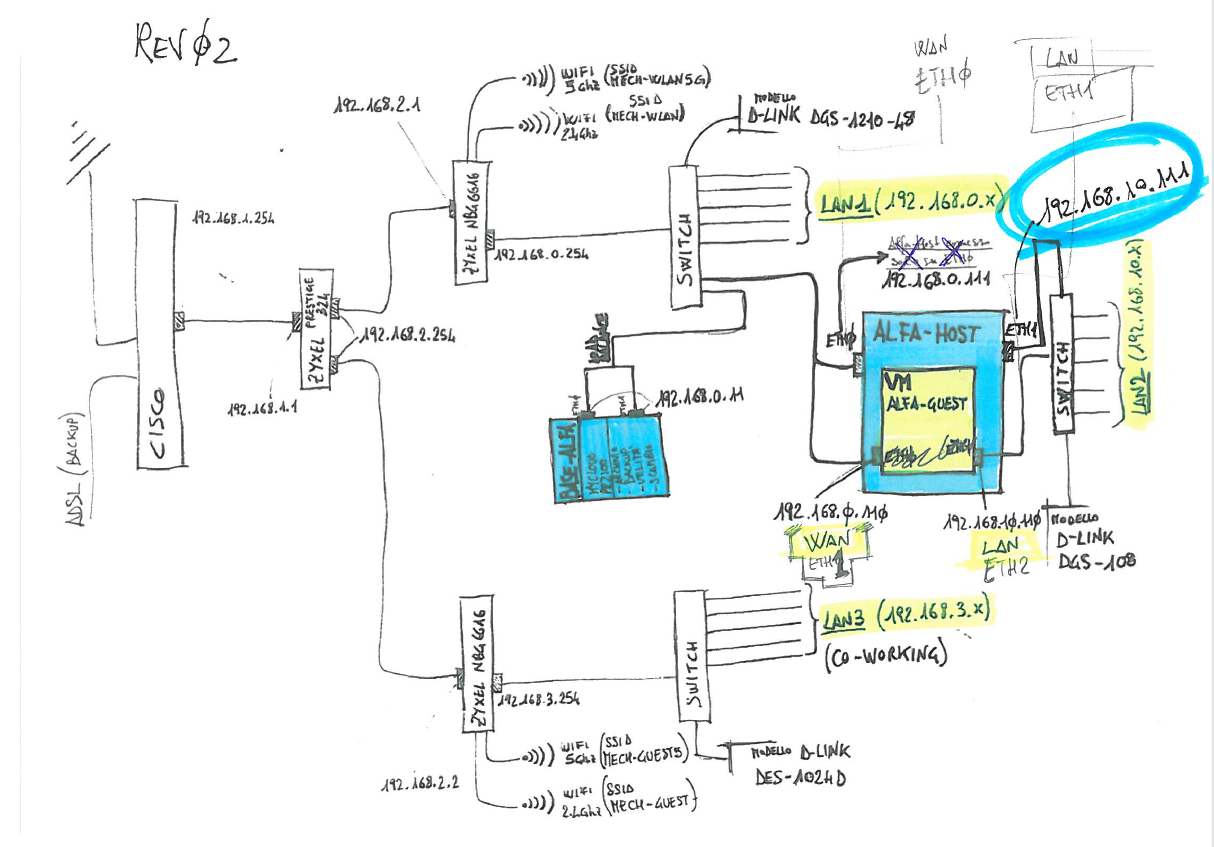 REVØ2
192.168.2.1
WIFI 5Ghz (SSID MECH-WLAN5G)
WIFI 2.4Ghz (SSID MECH-WLAN)
MODELLO
D-LINK DGS-1210-48
WAN
ETHØ
LAN
ETH1
192.168.10.111
192.168.1.254
ZYXEL NBG6616
192.168.0.254
SWITCH
LAN1 (192.168.0.x)
192.168.0.111
CISCO
ZYXEL PRESTIGE 324
192.168.2.254
192.168.1.1
ADSL (BACKUP)
LOAD BALANCE
ETH1
192.168.0.11
BASE-ALFA
MYCLOUD
- BACKUP
- UTILITA
ETHØ
ALFA-HOST
ETH1
VM
ALFA-GUEST
SWITCH
LAN2 (192.168.10.x)
192.168.Ø.11Ø
WAN
ETH1
192.168.1Ø.11Ø
LAN
ETH2
MODELLO
D-LINK
DGS-108
ZYXEL NBG6616
192.168.3.254
SWITCH
LAN3 (192.168.3.x)
(CO-WORKING)
192.168.2.2
WIFI 5Ghz (SSID MECH-GUEST5)
WIFI 2.4Ghz (SSID MECH-GUEST)
MODELLO D-LINK
DES-1024D